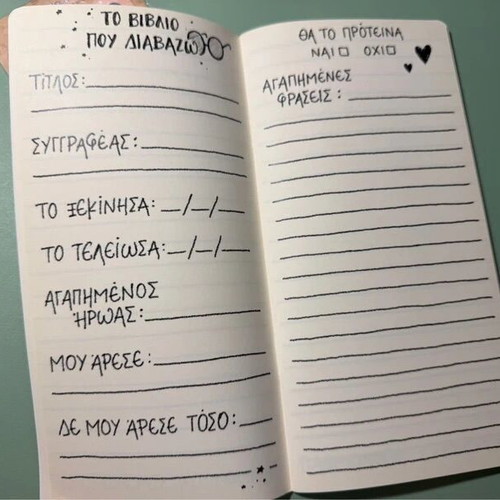 ΤΟ ΒΙΒΛΙΟ
ΠΟΥ ΔΙΑΒΑΖΩ
ΤΙΤΛΟΣ:
ΣΥΓΓΡΑΦΈΑΣ:
ΤΟ ΞΕΚΙΝΗΣΑ: _/_/_
ΤΟ ΤΕΛΕΊΩΣΑ: _/_/_
ΑΓΑΠΗΜΈΝΟΣ
ΉΡΩΑΣ:
ΜΟΥ ΆΡΕΣΕ:
ΔΕ ΜΟΥ ΆΡΕΣΕ ΤΌΣΟ:
ΘΑ ΤΟ ΠΡΌΤΕΙΝΑ
ΝΑΙ □ ΟΧΙ □
ΑΓΑΠΗΜΈΝΕΣ
ΦΡΑΣΕΙΣ: